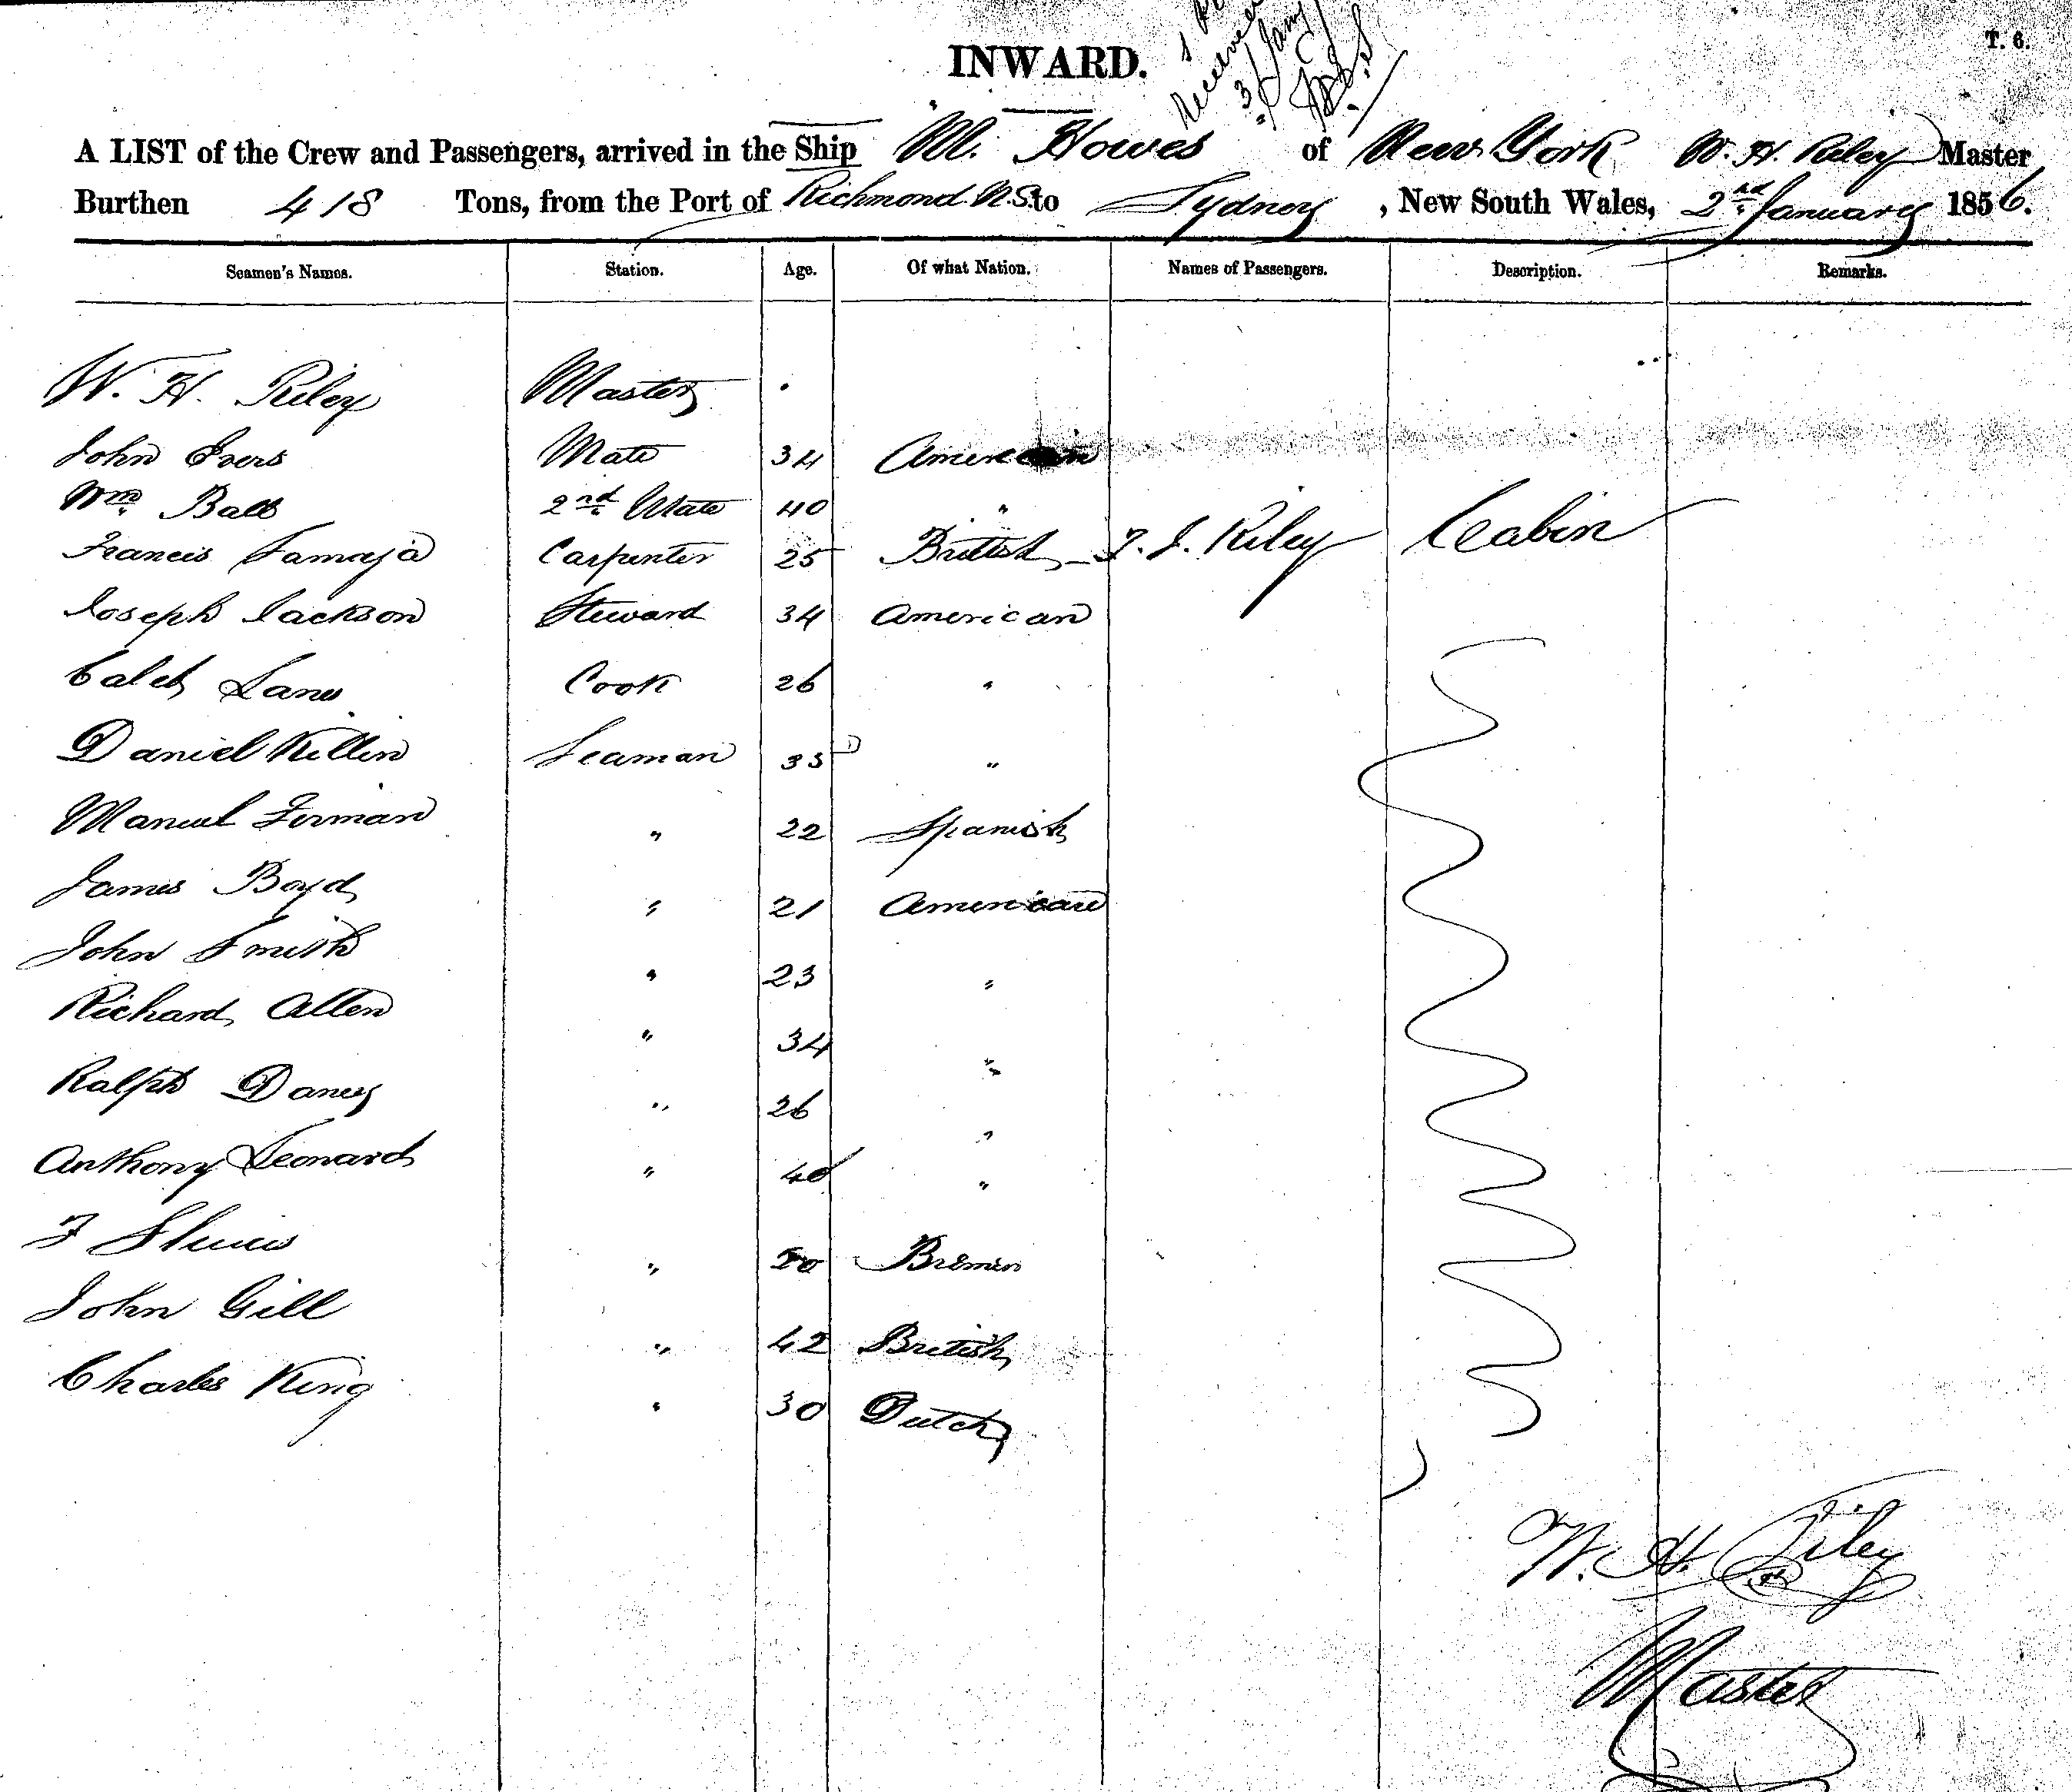 T. 6.
INWARD.
3/ Jany
A LIST of the Crew and Passengers, arrived in the Ship M. Howes of New York W. H. Riley Master
Burthen 418 Tons, from the Port of Richmond U.S. to Sydney, New South Wales, 2nd January 1856.
Seamen's Names. Station. Age. Of what Nation. Names of Passengers. Description. Remarks.
W. H. Riley Master
John Mate 34 American
Wm Ball 2nd Mate 40 "
Francis Carpenter 25 British T. J. Riley Cabin
Joseph Jackson Steward 34 American
Caleb Lane Cook 26 "
Daniel Killin Seaman 35 "
Manuel Firman " 22 Spanish
James Boyd " 21 American
John Smith " 23 "
Richard Allen " 34 "
Ralph Dancy " 26 "
Anthony Leonard " 40 "
F " Bremen
John Gill " 42 British
Charles King " 30 Dutch
W. H. Riley
Master